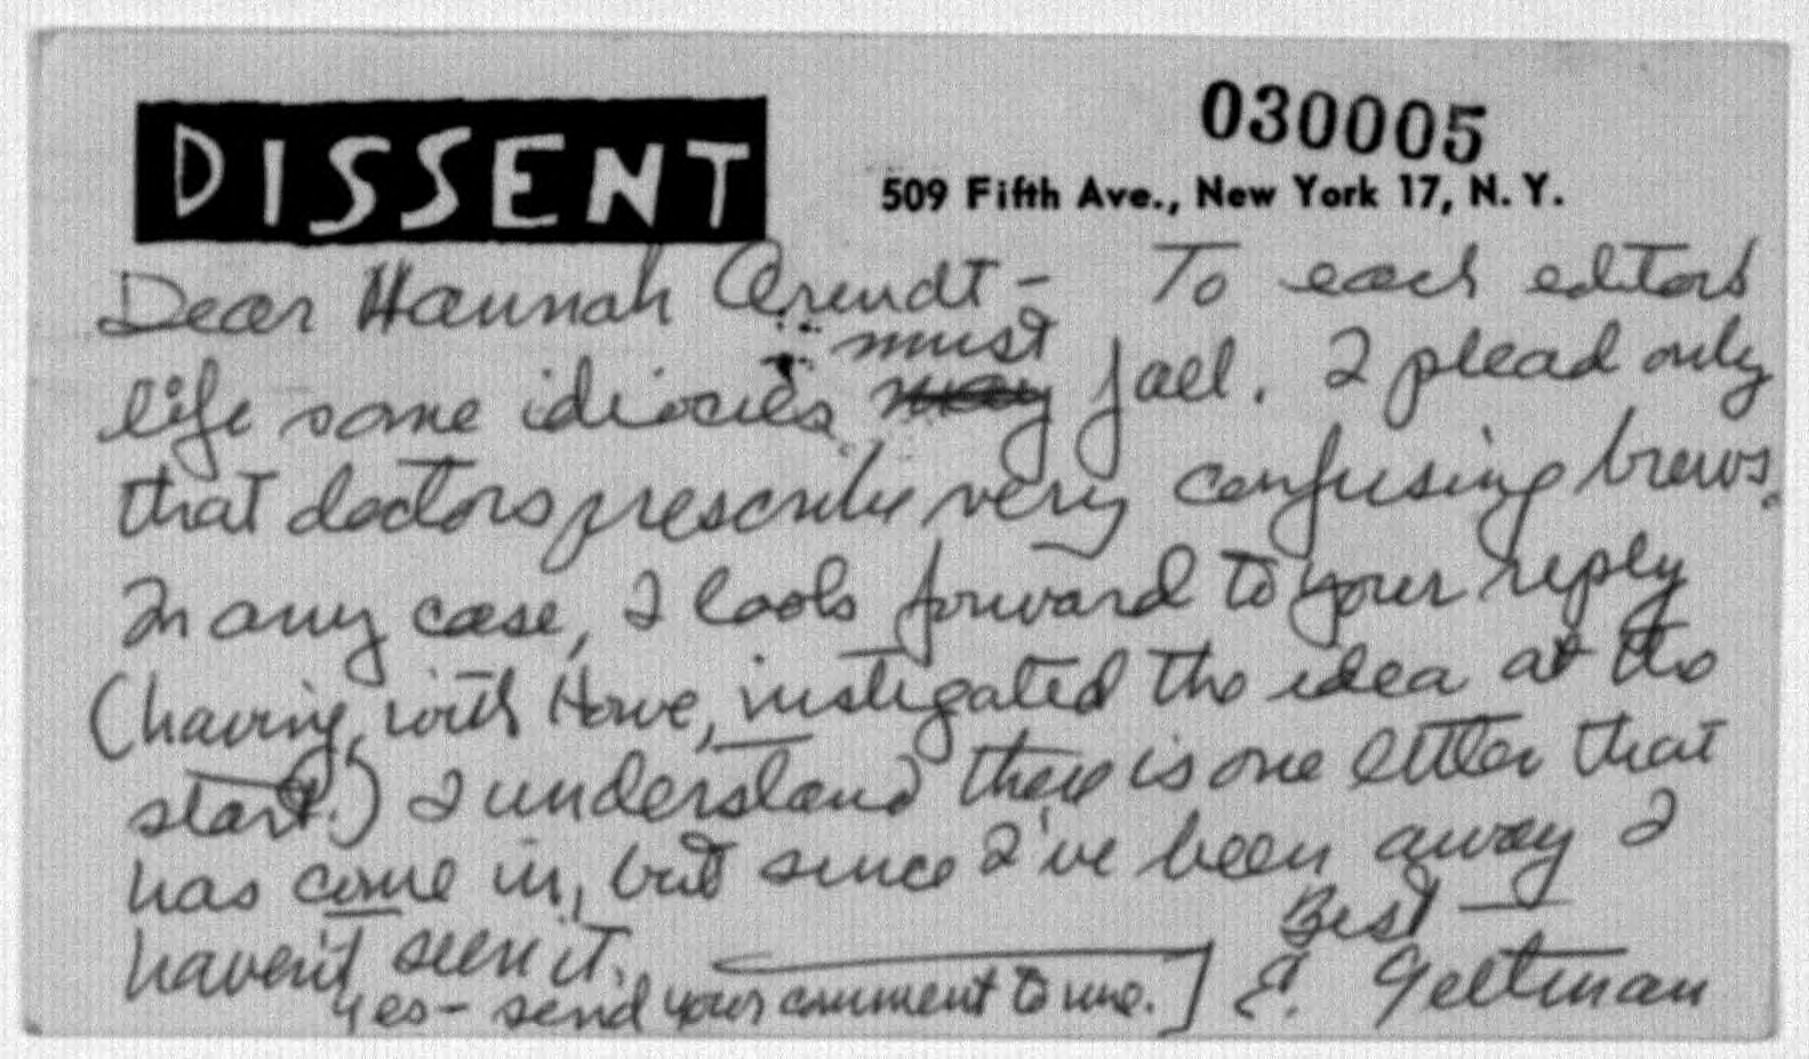 DISSENT
030005
509 Fifth Ave., New York 17, N. Y.
Dear Hannah Arendt – To each editors
must
life some idiocies may fall. I plead only
that doctors prescribe very confusing brews.
In any case, I look forward to your reply
(having, with Howe, instigated the idea at the
start.) I understand there is one letter that
has come in, but since I've been away I
haven't seen it.
Best —
Yes – send your comment to me.] E. Geltman